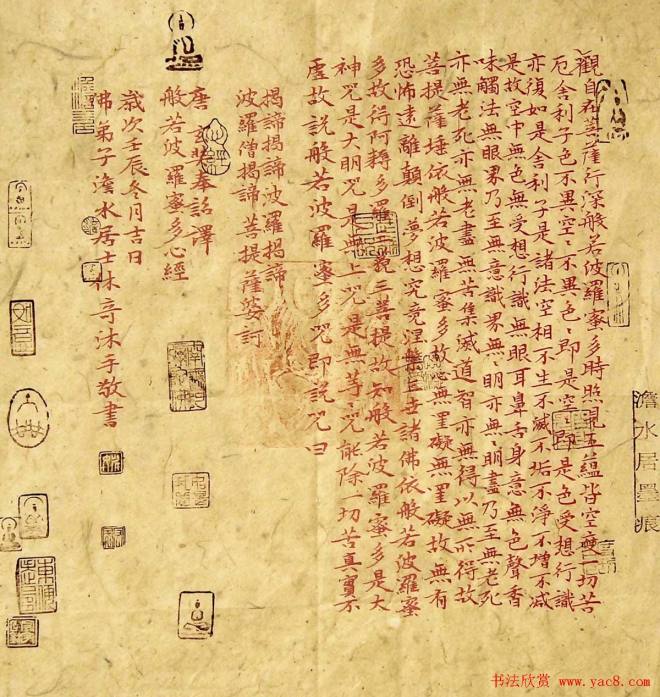 觀自在菩薩行深般若波羅蜜多時照見五蘊皆空度一切苦
厄舍利子色不異空〻不異色〻即是空〻即是色受想行識
亦復如是舍利子是諸法空相不生不滅不垢不淨不增不減
是故空中無色無受想行識無眼耳鼻舌身意無色聲香
味觸法無眼界乃至無意識界無〻明亦無〻明盡乃至無老死
亦無老死亦無老盡無苦集滅道智亦無得以無所得故
菩提薩埵依般若波羅蜜多故心無罣礙無罣礙故無有
恐怖遠離顛倒夢想究竟涅槃三世諸佛依般若波羅蜜
多故得阿耨多羅三藐三菩提故知般若波羅蜜多是大
神咒是大明咒是無上咒是無等〻咒能除一切苦真實不
虛故說般若波羅蜜多咒即說咒曰
揭諦揭諦波羅揭諦
波羅僧揭諦菩提薩婆訶
唐玄奘奉詔譯
般若波羅蜜多心經
歲次壬辰冬月吉日
佛弟子澹水居士林奇沐手敬書
澹水居墨痕
书法欣赏 www.yac8.com